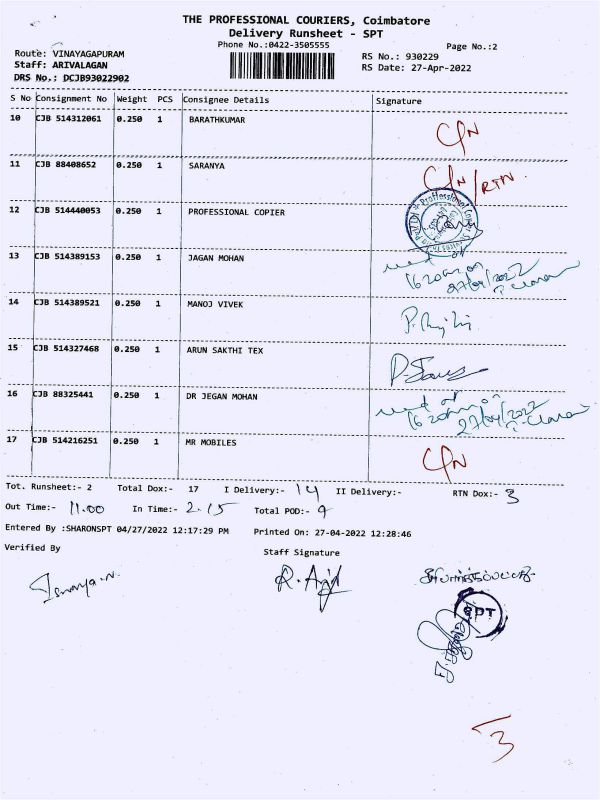 THE PROFESSIONAL COURIERS, Coimbatore
Delivery Runsheet - SPT
Phone No.:0422-3505555
Page No.:2
Route: VINAYAGAPURAM
RS No.: 930229
Staff: ARIVALAGAN
RS Date: 27-Apr-2022
DRS No.: DCJB93022902
S No Consignment No Weight PCS Consignee Details Signature
10 CJB 514312061 0.250 1 BARATHKUMAR
11 CJB 88408652 0.250 1 SARANYA RTN
12 CJB 514440053 0.250 1 PROFESSIONAL COPIER
13 CJB 514389153 0.250 1 JAGAN MOHAN
27/04/2022
14 CJB 514389521 0.250 1 MANOJ VIVEK
15 CJB 514327468 0.250 1 ARUN SAKTHI TEX
16 CJB 88325441 0.250 1 DR JEGAN MOHAN
27/04/2022
17 CJB 514216251 0.250 1 MR MOBILES
Tot. Runsheet:- 2 Total Dox:- 17 I Delivery:- 14 II Delivery:- RTN Dox:- 3
Out Time:- 11.00 In Time:- 2.15 Total POD:- 9
Entered By :SHARONSPT 04/27/2022 12:17:29 PM Printed On: 27-04-2022 12:28:46
Verified By Staff Signature
SPT
3